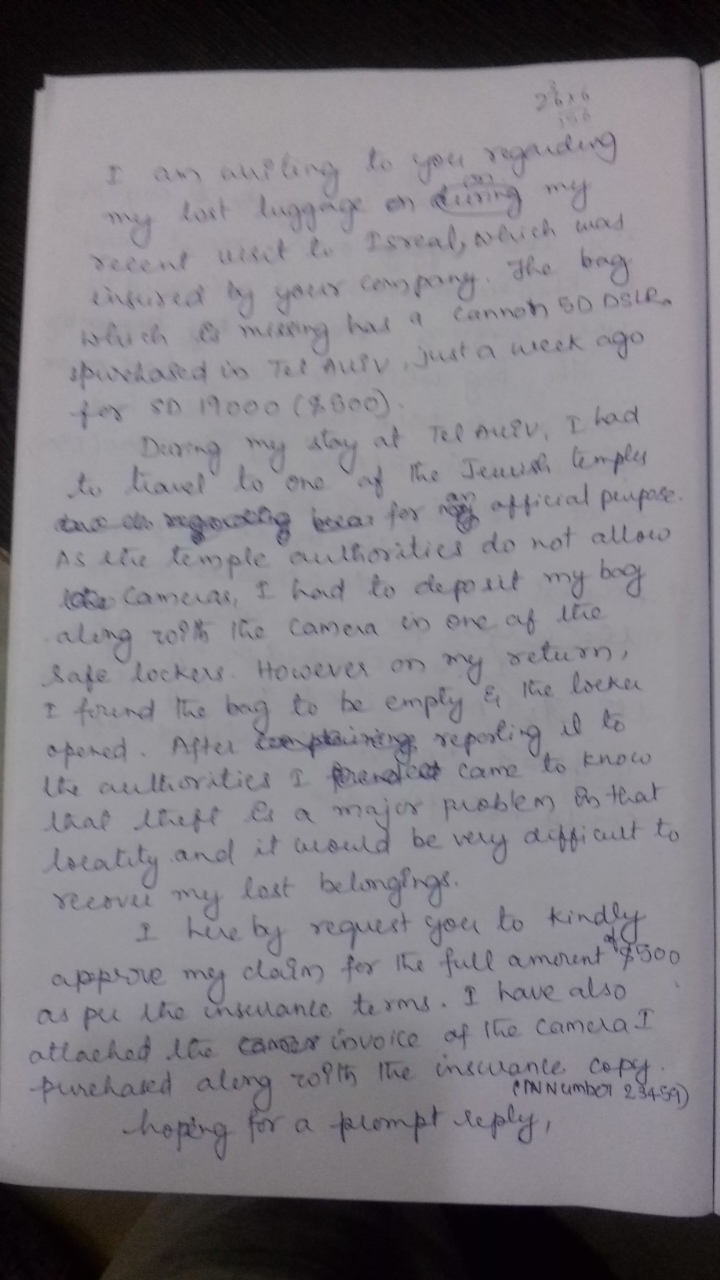 26x6
156
I am writing to you regarding
on
my lost luggage on during my
recent visit to Isreal, which was
insured by your company. The bag
which is missing has a cannon 5D DSLR
purchased in Tel Aviv, just a week ago
for SD 19000 ($500).
During my stay at Tel Aviv, I had
to travel to one of the Jewish temples
regarding for an official purpose.
As the temple authorities do not allow
cameras, I had to deposit my bag
along with the camera in one of the
safe lockers. However on my return,
I found the bag to be empty & the locker
opened. After complaining reporting it to
the authorities I came to know
that theft is a major problem in that
locality and it would be very difficult to
recover my lost belongings.
I here by request you to kindly
approve my claim for the full amount of $500
as per the insurance terms. I have also
attached the invoice of the camera I
purchased along with the insurance copy.
(IN Number 23459)
hoping for a prompt reply,